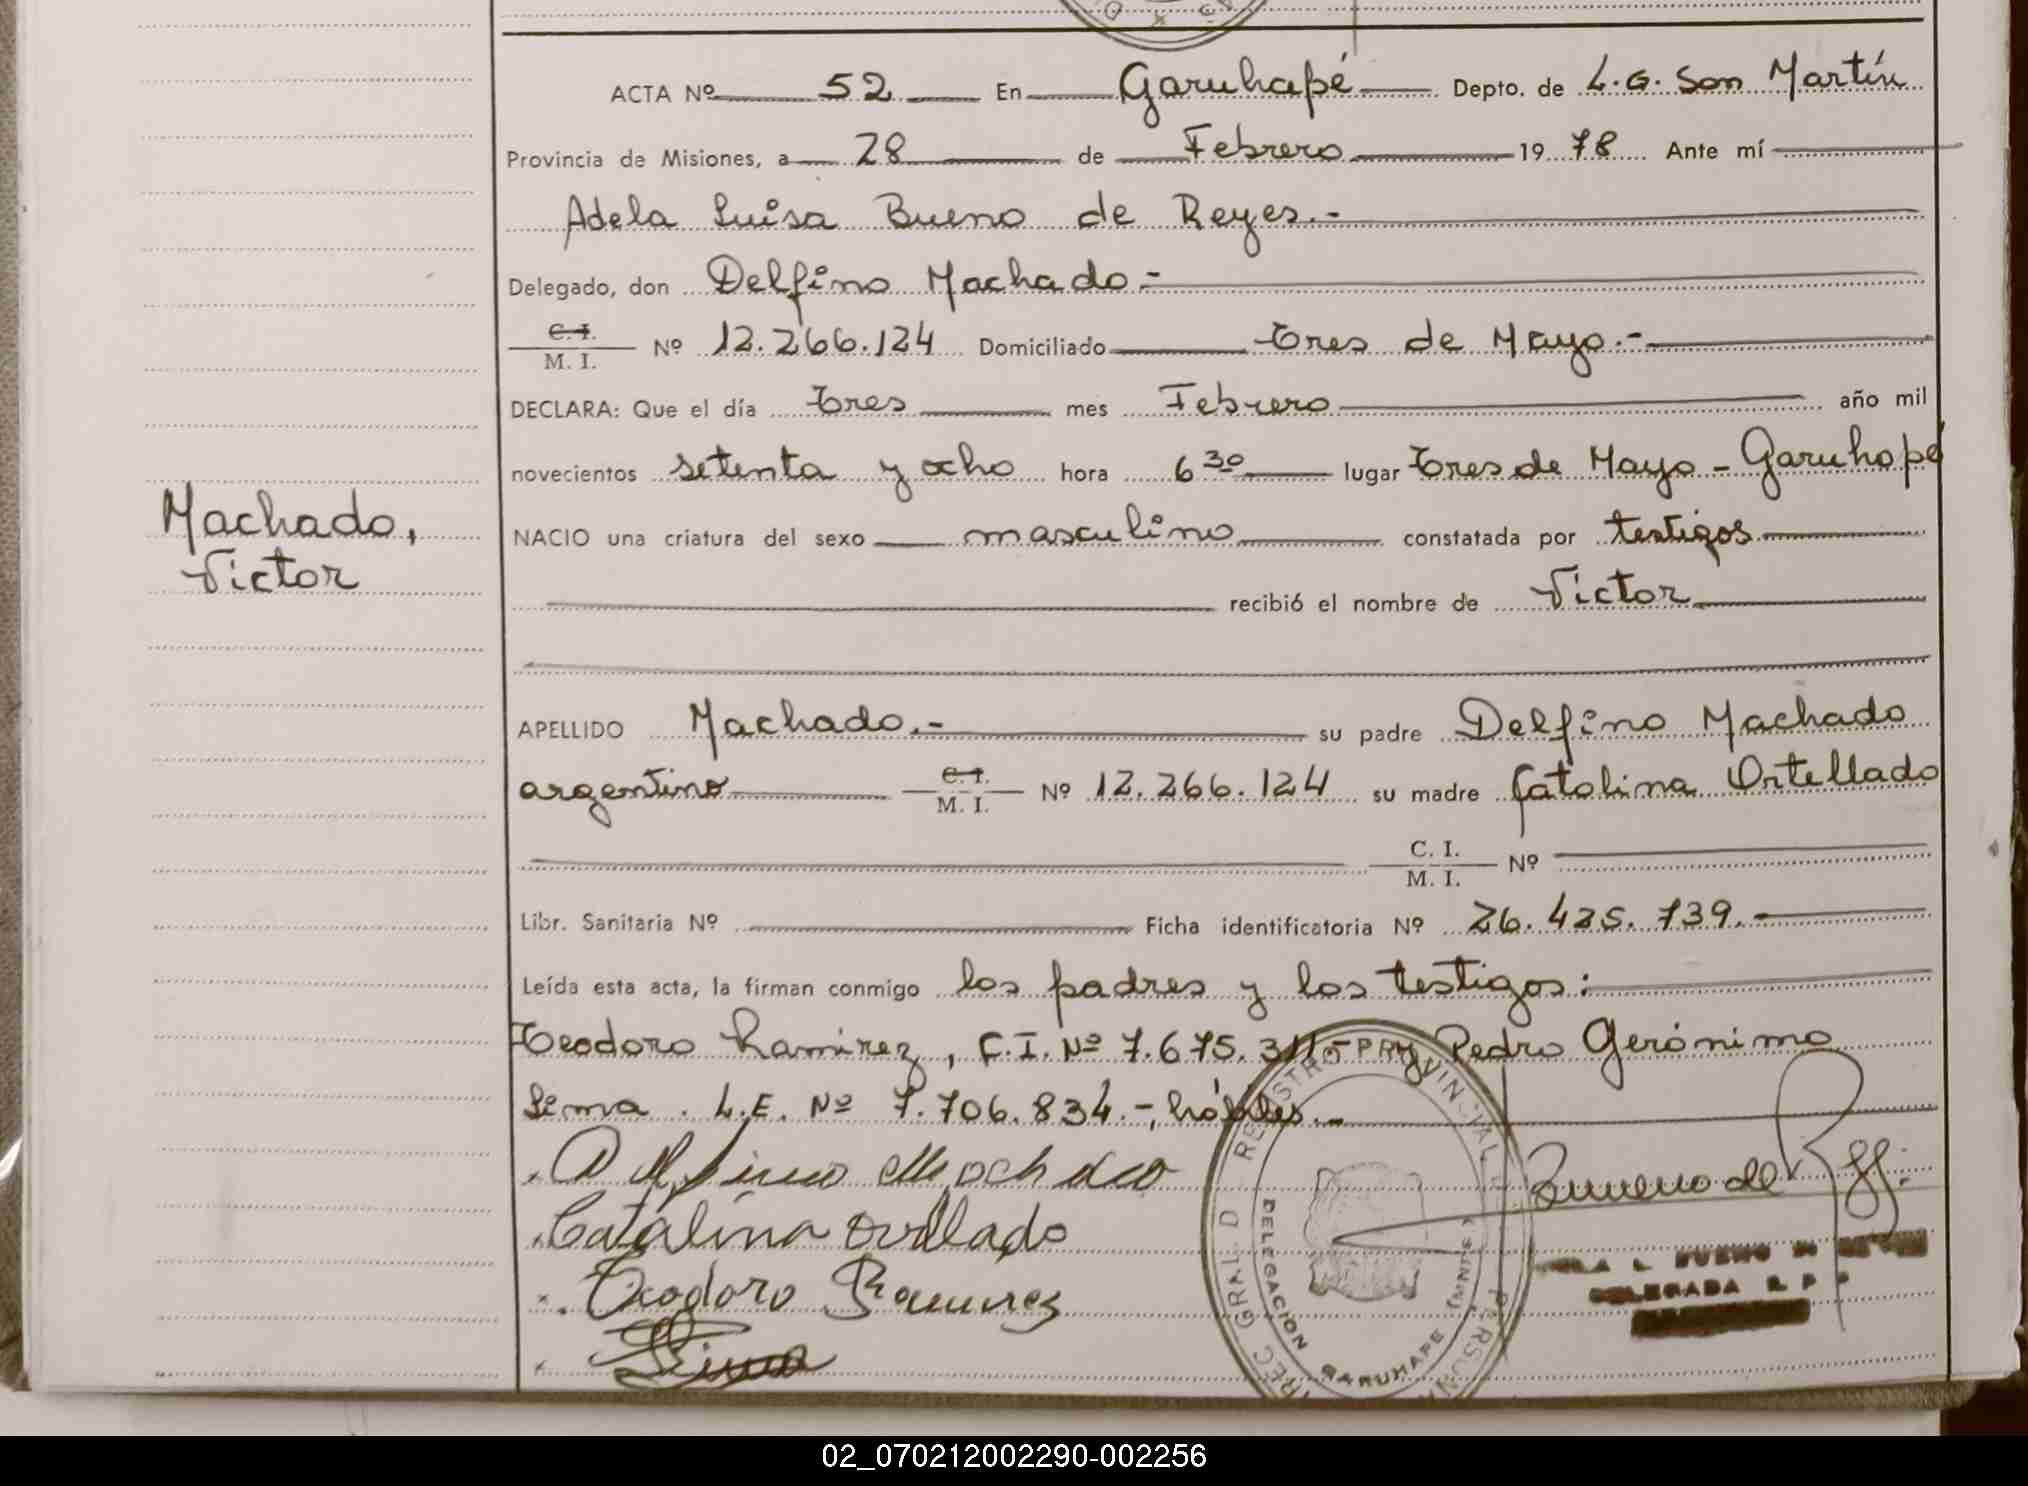 ACTA Nº 52 En Garuhapé Depto. de L.G. San Martín
Provincia de Misiones, a 28 de Febrero 1978 Ante mí
Adela Luisa Bueno de Reyes.-
Delegado, don Delfino Machado.-
C.I.
M. I. Nº 12.266.124 Domiciliado Tres de Mayo.-
DECLARA: Que el día Tres mes Febrero año mil
novecientos setenta y ocho hora 6 30 lugar Tres de Mayo - Garuhapé
Machado,
Victor
NACIO una criatura del sexo masculino constatada por testigos
recibió el nombre de Victor
APELLIDO Machado.- su padre Delfino Machado
argentino C.I. M. I. Nº 12.266.124 su madre Catalina Ortellado
C. I.
M. I. Nº
Libr. Sanitaria Nº Ficha identificatoria Nº 26.425.739.-
Leída esta acta, la firman conmigo los padres y los testigos:
Teodoro Ramirez, C.I. Nº 7.675.311- y Pedro Gerónimo
Lima. L.E. Nº 7.706.834.-, hábiles.-
Delfino Machado
Catalina
Teodoro Ramires
Lima
Bueno de
REGISTRO PROVINCIAL
DELEGACION GARUHAPE
BUENO DE
DELEGADA R P P
02_070212002290-002256